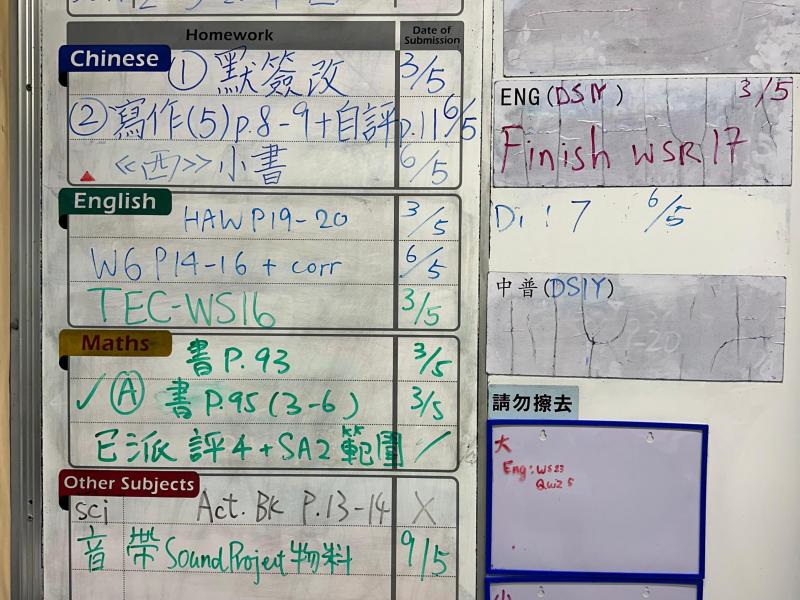 Homework
Date of Submission
Chinese
① 默簽改 3/5
② 寫作(5) p.8-9+自評p.11 6/5
<<西>>小書 6/5
English
HAW P19-20 3/5
W6 P14-16 + corr 6/5
TEC-WS16 3/5
Maths
書 P.93 3/5
✓ Ⓐ 書 P.95 (3-6) 3/5
已派 評4+SA2 範圍 /
Other Subjects
sci Act. BK P.13-14 X
音 帶 Sound Project 物料 9/5
ENG(DS1Y) 3/5
Finish WSR17
Di: 7 6/5
中普(DS1Y)
請勿擦去
大
Eng: WS23
QUIZ 5